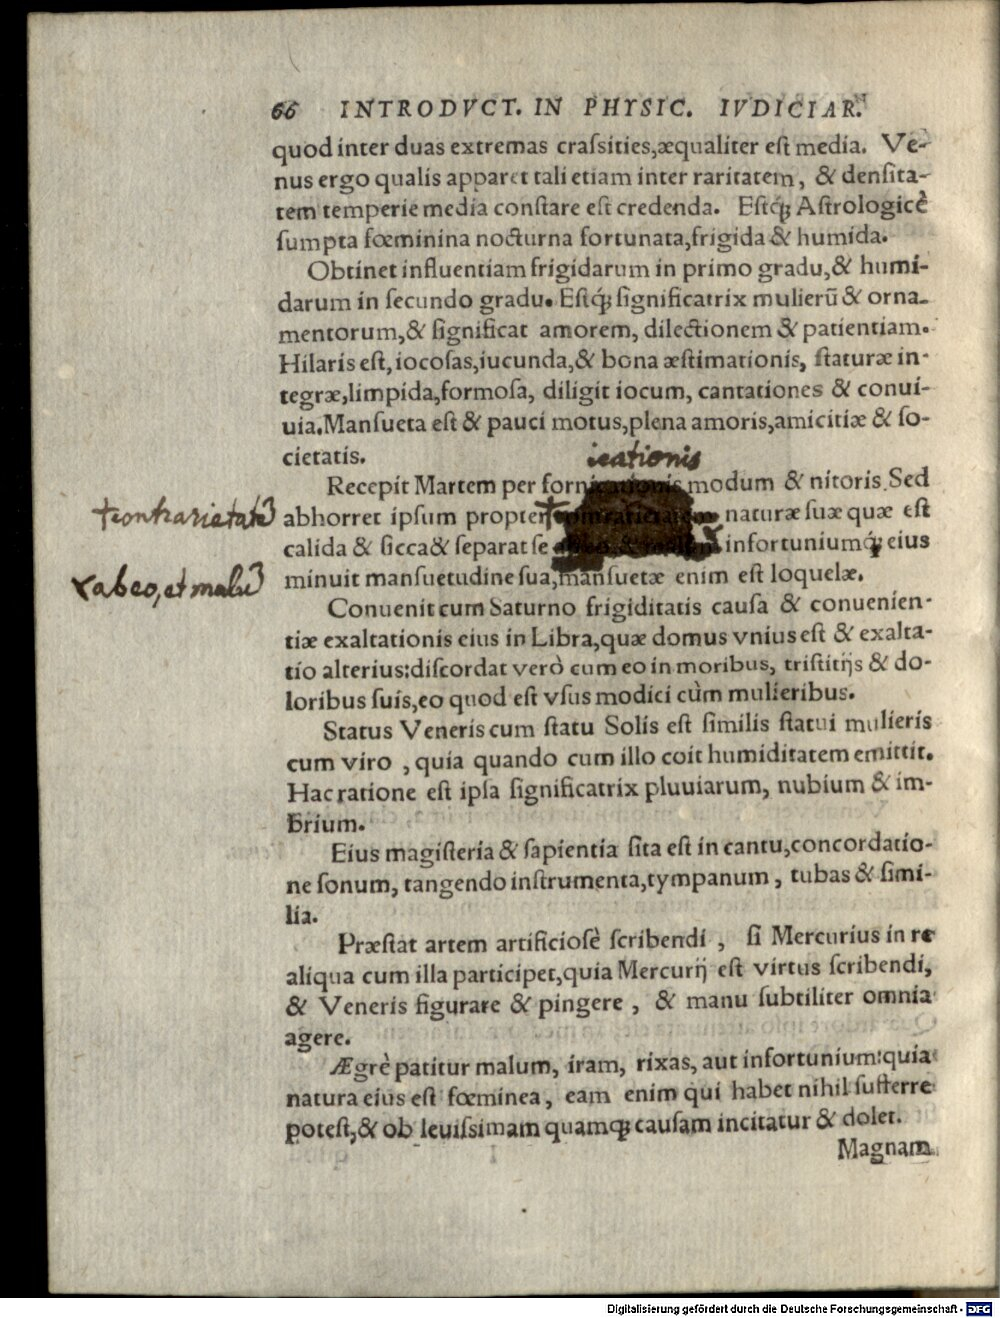 66 INTRODVCT. IN PHYSIC. IVDICIAR.
quod inter duas extremas craſsities,æqualiter eſt media. Ve-
nus ergo qualis apparet tali etiam inter raritatem, & denſita-
tem temperie media conſtare eſt credenda. Eſtq́; Aſtrologicè
ſumpta fœminina nocturna fortunata,frigida & humida.
Obtinet influentiam frigidarum in primo gradu,& humi-
darum in ſecundo gradu. Eſtq́; ſignificatrix mulierū & orna-
mentorum,& ſignificat amorem, dilectionem & patientiam.
Hilaris eſt, iocoſas,iucunda,& bona æſtimationis, ſtaturæ in-
tegræ,limpida,formoſa, diligit iocum, cantationes & conui-
uia.Manſueta eſt & pauci motus,plena amoris,amicitiæ & ſo-
cietatis.
icationis
Recepit Martem per fornicationis modum & nitoris. Sed
†contrarietatē abhorret ipſum propter† naturæ ſuæ quæ eſt
calida & ſicca& ſeparat ſe infortuniumq́; eius
x abeo, et malū minuit manſuetudine ſua,manſuetæ enim eſt loquelæ.
Conuenit cum Saturno frigiditatis cauſa & conuenien-
tiæ exaltationis eius in Libra,quæ domus vnius eſt & exalta-
tio alterius:diſcordat verò cum eo in moribus, triſtitijs & do-
loribus ſuis,eo quod eſt vſus modici cùm mulieribus.
Status Veneris cum ſtatu Solis eſt ſimilis ſtatui mulieris
cum viro , quia quando cum illo coit humiditatem emittit.
Hac ratione eſt ipſa ſignificatrix pluuiarum, nubium & im-
brium.
Eius magiſteria & ſapientia ſita eſt in cantu,concordatio-
ne ſonum, tangendo inſtrumenta,tympanum , tubas & ſimi-
lia.
Præſtat artem artificioſè ſcribendi , ſi Mercurius in re
aliqua cum illa participet,quia Mercurij eſt virtus ſcribendi,
& Veneris figurare & pingere , & manu ſubtiliter omnia
agere.
Ægrè patitur malum, iram, rixas, aut infortunium:quia
natura eius eſt fœminea, eam enim qui habet nihil ſufferre
poteſt,& ob leuiſsimam quamq; cauſam incitatur & dolet.
Magnam
Digitalisierung gefördert durch die Deutsche Forschungsgemeinschaft - DFG